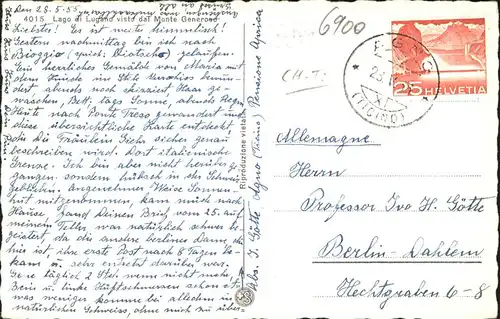 Den 28.5.55.
4015 Lago di Lugano visto dal Monte Generoso
Liebster! Es ist weiter himmlisch!
Gestern nachmittag bin ich nach
Bioggio (sprich: Biotscho) gelaufen.
Ein herrliches Gemälde von Maria mit
dem Kinde im Stile
dert, abends noch Haar ge-
waschen, Bett, tags Sonne, abends Regen
Heute nach Ponte Tresa gewandert und
diese übersichtliche Karte entdeckt,
die Dir Fräulein sicher genau
beschreiben wird. Dort italienische
Grenze. Ich bin aber nicht herüber ge-
gangen, sondern hübsch in der Schweiz
geblieben. Angenehmer Weise Sonnen-
hut mitgenommen, kam mich nach
Hause, fand Deinen Brief vom 25. auf
meinem Teller, was natürlich schwer be-
geistert, da die andere Berliner Dame,
hier ist, ihre erste Post nach 8 Tagen be-
kam u. sehr enttäuscht darüber war.
täglich 2 Std. wenn nicht mehr,
Bein u. linke Hüftschmerzen schon et-
was weniger, komme bei allem in
natürlichen Schweiss, ohne mich zu über-
Riproduzione vietata
Abs. I. Götte Agno (Ticino) Pensione Africa
6900
CH-T:
AGNO
(TICINO)
25 HELVETIA
Allemagne
Herrn
Professor Ivo H. Götte
Berlin-Dahlem
Hechtgraben 6-8